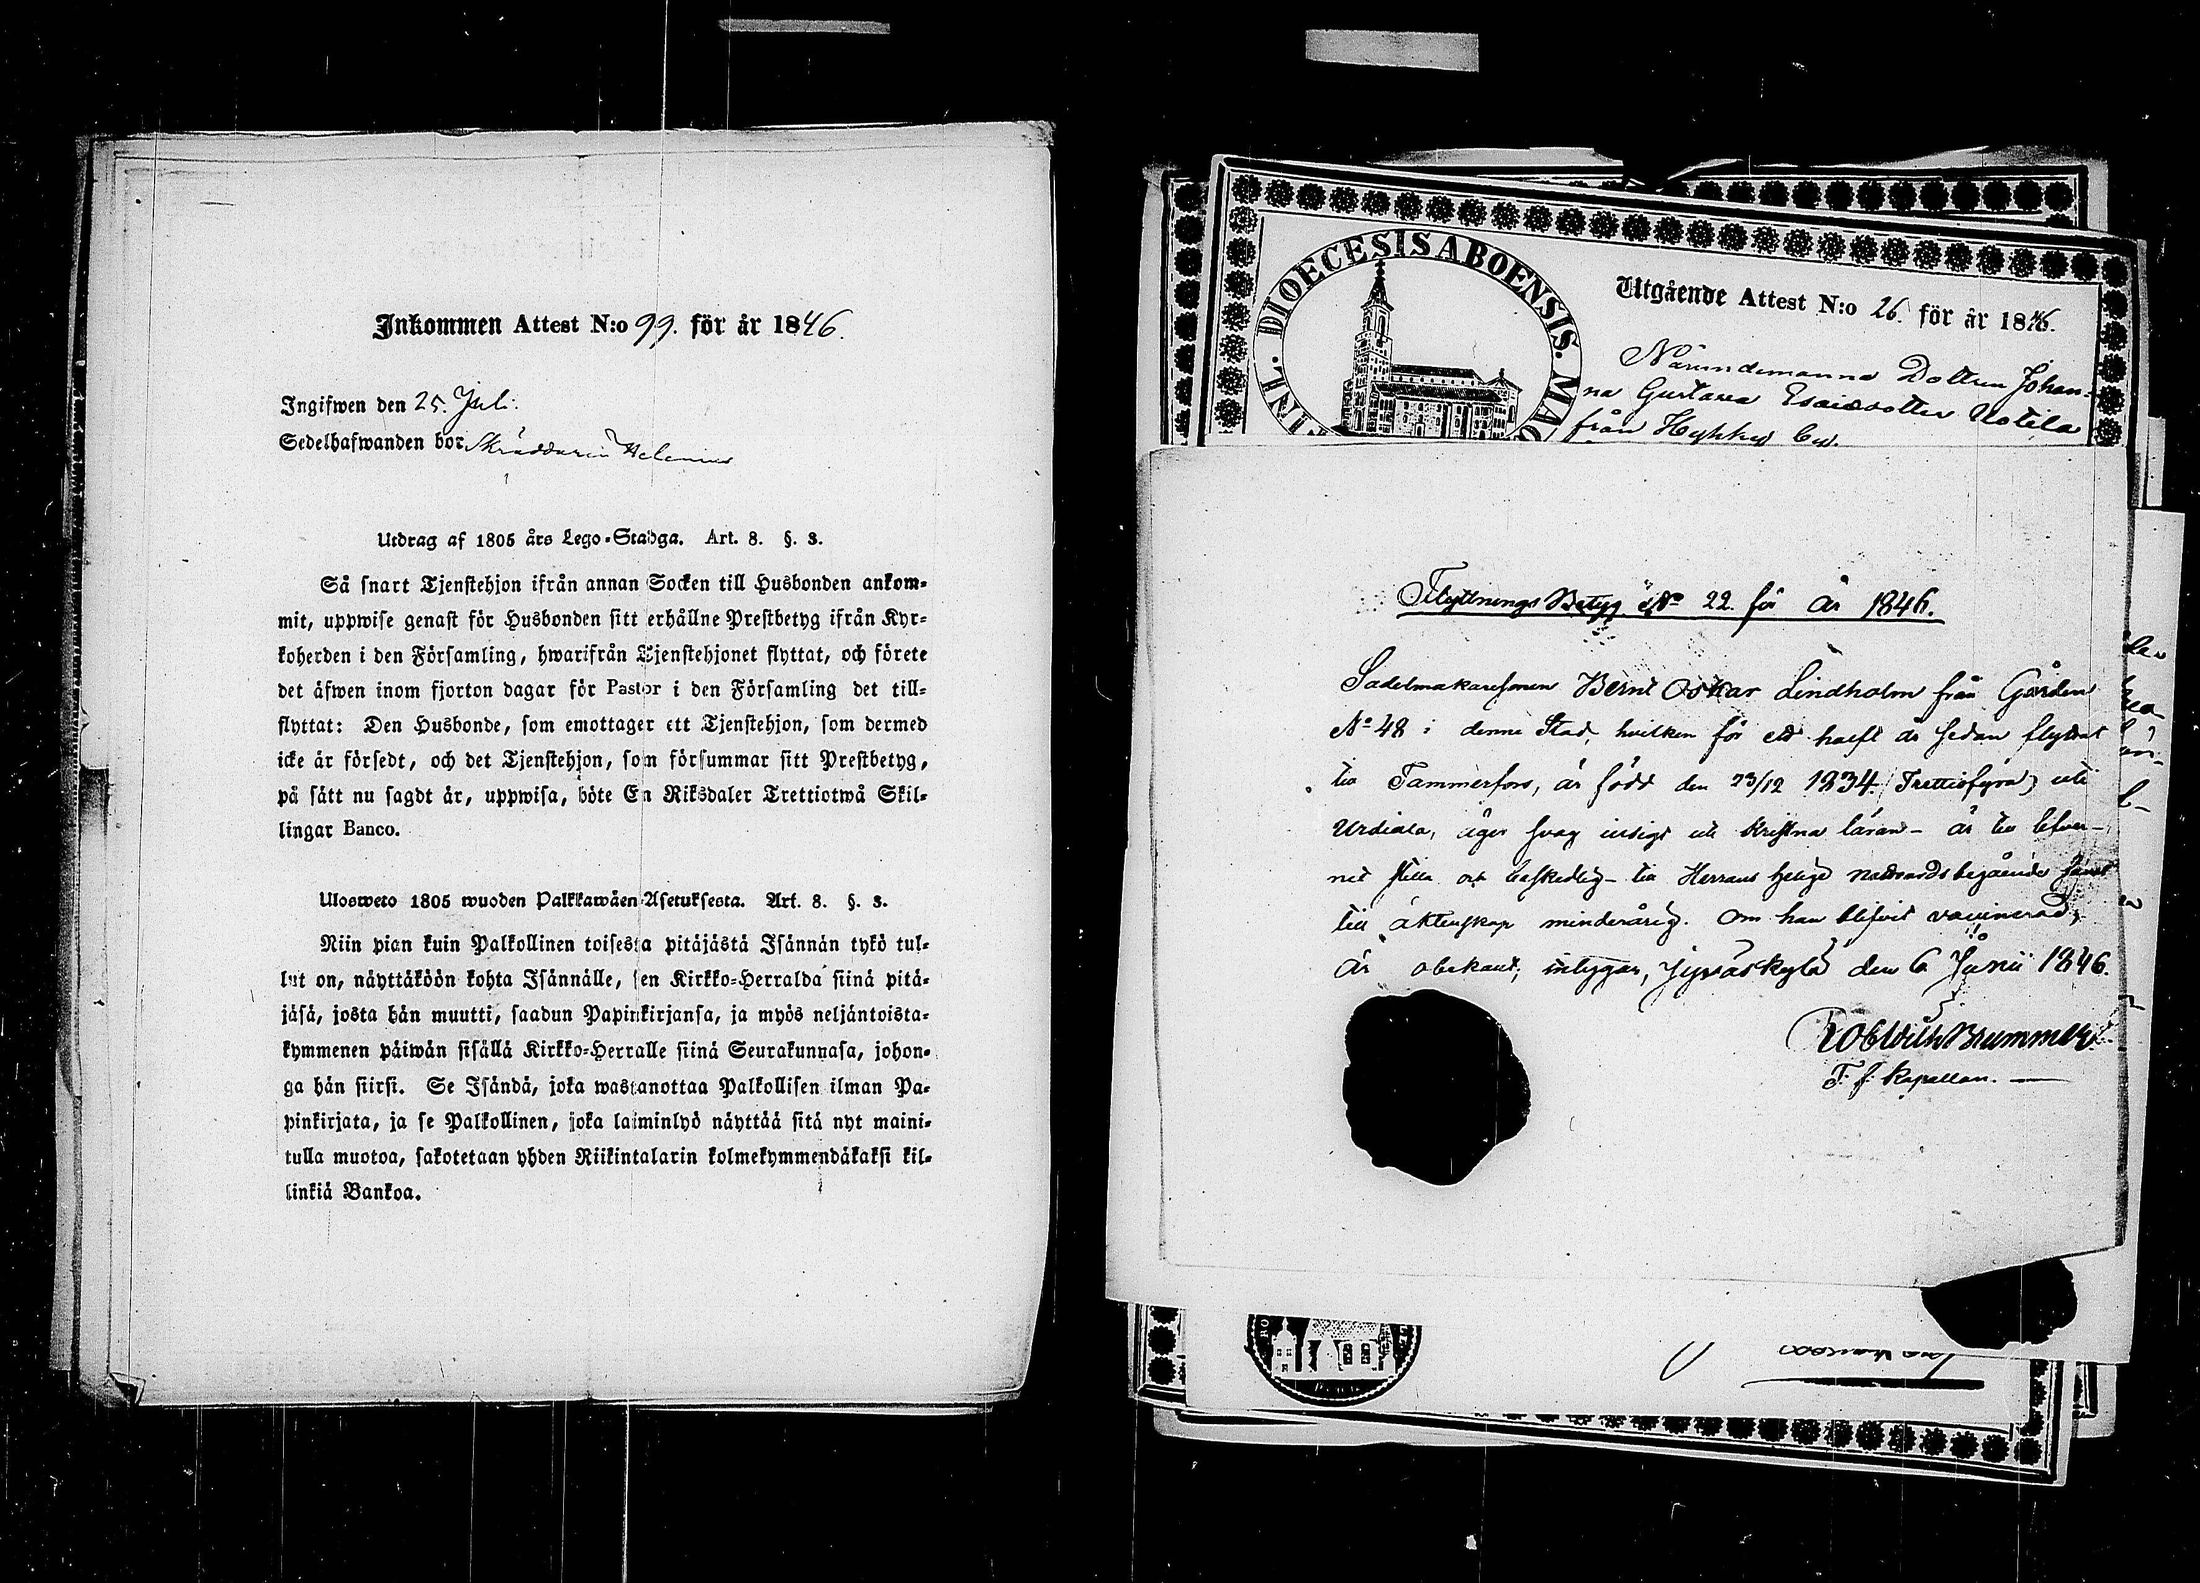 Inkommen Attest N:o 99. för år 1846.
Ingifwen den 25. Juli.
Sedelhafwanden bor Skräddaren Helenius
Utdrag af 1805 års Lego-Stadga. Art. 8. §. 3.
Så snart Tjenstehjon ifrån annan Socken till Husbonden ankom-
mit, uppwise genast för Husbonden sitt erhållne Prestbetyg ifrån Kyr-
koherden i den Församling, hwarifrån Tjenstehjonet flyttat, och förete
det äfwen inom fjorton dagar för Pastor i den Församling det till-
flyttat: Den Husbonde, som emottager ett Tjenstehjon, som dermed
icke är försedt, och det Tjenstehjon, som försummar sitt Prestbetyg,
på sätt nu sagdt är, uppwisa, böte En Riksdaler Trettiotwå Skil-
lingar Banco.
Ulosweto 1805 wuoden Palkkawäen-Asetuksesta. Art. 8. §. 3.
Niin pian kuin Palkollinen toisesta pitäjästä Isännän tykö tul-
lut on, näyttäköön kohta Isännälle, sen Kirkko-Herralda siinä pitä-
jäsä, josta hän muutti, saadun Papinkirjansa, ja myös neljäntoista-
kymmenen päiwän sisällä Kirkko-Herralle siinä Seurakunnasa, johon-
ga hän siirsi. Se Isändä, joka wastanottaa Palkollisen ilman Pa-
pinkirjata, ja se Palkollinen, joka laiminlyö näyttää sitä nyt maini-
tulla muotoa, sakotetaan yhden Riikintalarin kolmekymmendäkaksi kil-
linkiä Bankoa.
DIOECESIS ABOENSIS.
Utgående Attest N:o 26. för år 1846.
Nämndemanns Dottren Johan-
na Gustava Esaiædotter Uotila
från Hykkyö by.
Flyttnings Betyg No 22. för år 1846.
Sadelmakaresonen Bernt Oskar Lindholm från Gården
No 48 i denna Stad, hvilken för ett halft år sedan flyttat
till Tammerfors, är född den 23/12 1834 (Trettiofyra) uti
Urdiala, äger svag insigt uti kristna läran - är till lefver-
net stilla och beskedlig - till Herrans helige nattvards begående samt
till äktenskap minderårig. Om han blifvit vaccinerad,
är obekant, intygar, Jyväskylä den 6 Junii 1846.
Brummer
T. f. Kapellan.